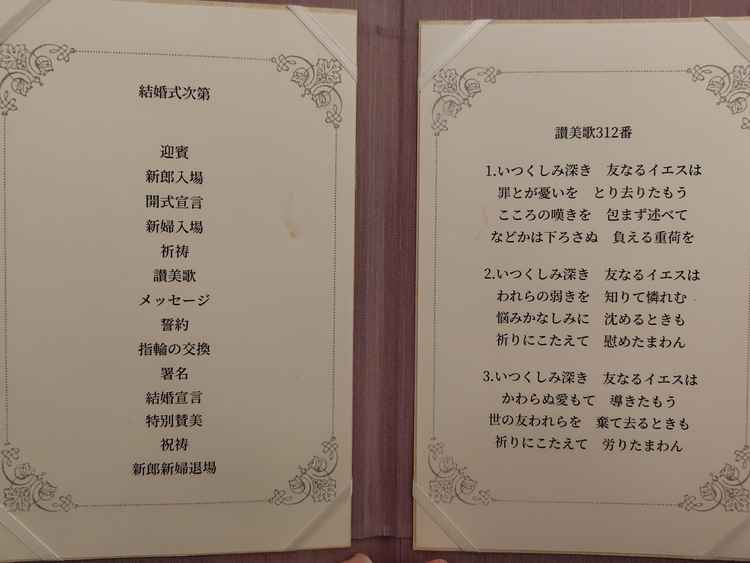 結婚式次第
迎賓
新郎入場
開式宣言
新婦入場
祈祷
讃美歌
メッセージ
誓約
指輪の交換
署名
結婚宣言
特別賛美
祝祷
新郎新婦退場
讃美歌312番
1.いつくしみ深き　友なるイエスは
罪とが憂いを　とり去りたもう
こころの嘆きを　包まず述べて
などかは下ろさぬ　負える重荷を
2.いつくしみ深き　友なるイエスは
われらの弱きを　知りて憐れむ
悩みかなしみに　沈めるときも
祈りにこたえて　慰めたまわん
3.いつくしみ深き　友なるイエスは
かわらぬ愛もて　導きたもう
世の友われらを　棄て去るときも
祈りにこたえて　労りたまわん